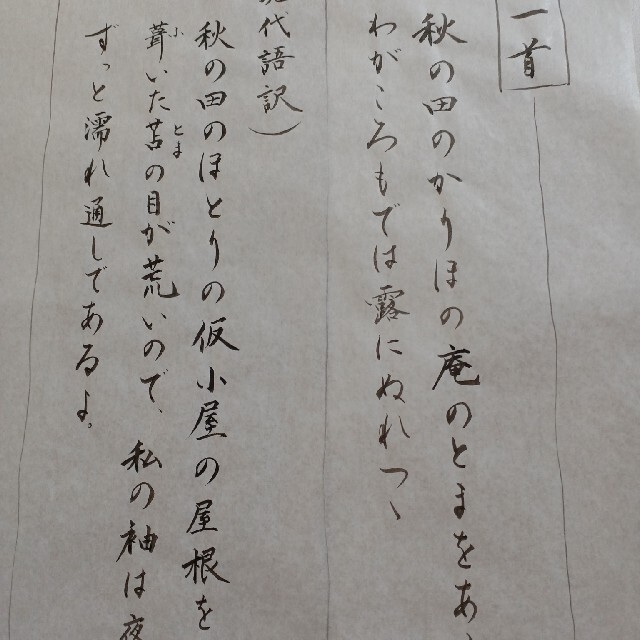 一首
秋の田のかりほの庵のとまをあ
わがころもでは露にぬれつゝ
代語訳)
秋の田のほとりの仮小屋の屋根を
葺いた苫の目が荒いので、私の袖は夜
ふ
とま
ずっと濡れ通しであるよ。